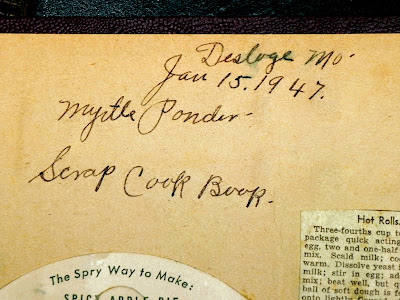 Desloge Mo.
Jan 15. 1947.
Myrtle Ponder.
Scrap Cook Book.
Hot Rolls.
Three-fourths cup
package quick acting
egg, two and one-half
mix. Scald milk; coo
warm. Dissolve yeast i
milk; stir in egg; ad
mix; beat well, but q
ball of soft dough is f
onto lightly
The Spry Way to Make:
SPICY APPLE PIE